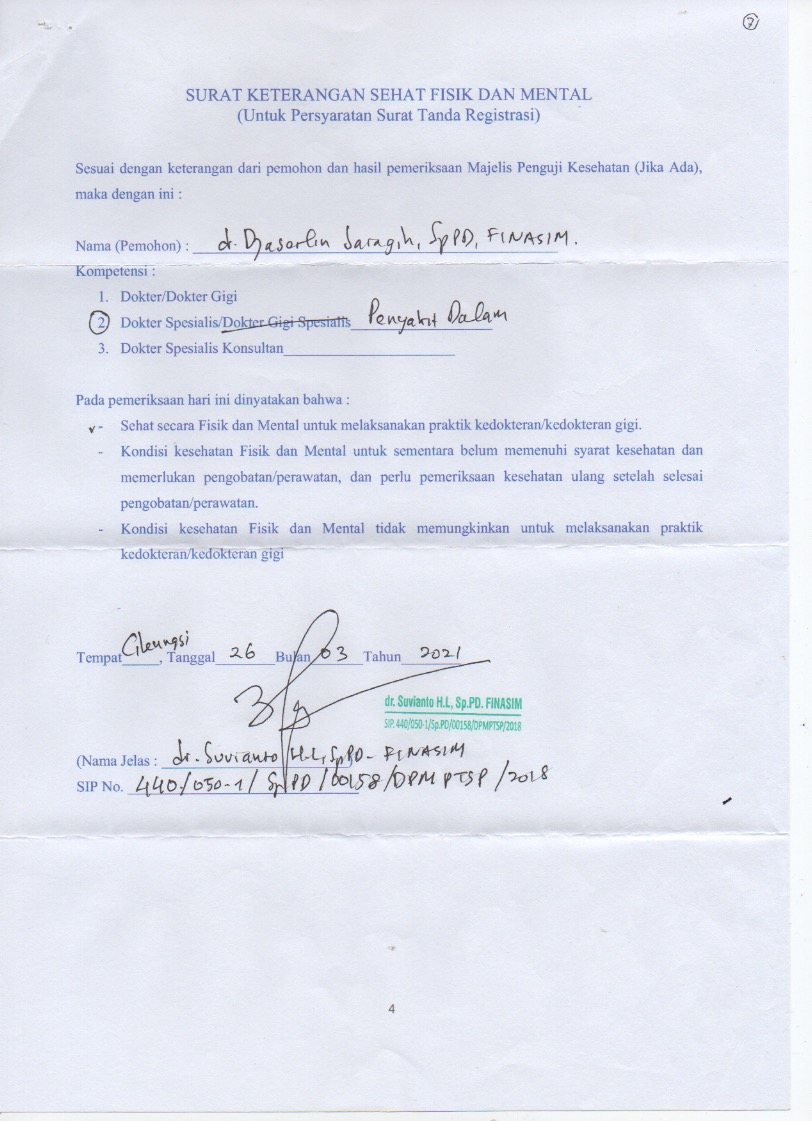 7
SURAT KETERANGAN SEHAT FISIK DAN MENTAL
(Untuk Persyaratan Surat Tanda Registrasi)
Sesuai dengan keterangan dari pemohon dan hasil pemeriksaan Majelis Penguji Kesehatan (Jika Ada),
maka dengan ini :
Nama (Pemohon) : dr. Djasarlin Saragih, SpPD, FINASIM.
Kompetensi :
1. Dokter/Dokter Gigi
2. Dokter Spesialis/Dokter Gigi Spesialis Penyakit Dalam
3. Dokter Spesialis Konsultan
Pada pemeriksaan hari ini dinyatakan bahwa :
- Sehat secara Fisik dan Mental untuk melaksanakan praktik kedokteran/kedokteran gigi.
- Kondisi kesehatan Fisik dan Mental untuk sementara belum memenuhi syarat kesehatan dan
memerlukan pengobatan/perawatan, dan perlu pemeriksaan kesehatan ulang setelah selesai
pengobatan/perawatan.
- Kondisi kesehatan Fisik dan Mental tidak memungkinkan untuk melaksanakan praktik
kedokteran/kedokteran gigi
Tempat Cileungsi, Tanggal 26 Bulan 03 Tahun 2021
dr. Suvianto H.L, Sp.PD. FINASIM
SIP. 440/050-1/Sp.PD/00158/DPMPTSP/2018
(Nama Jelas : dr. Suvianto H.L, SpPD - FINASIM
SIP No. 440/050-1/SpPD/00158/DPMPTSP/2018
4